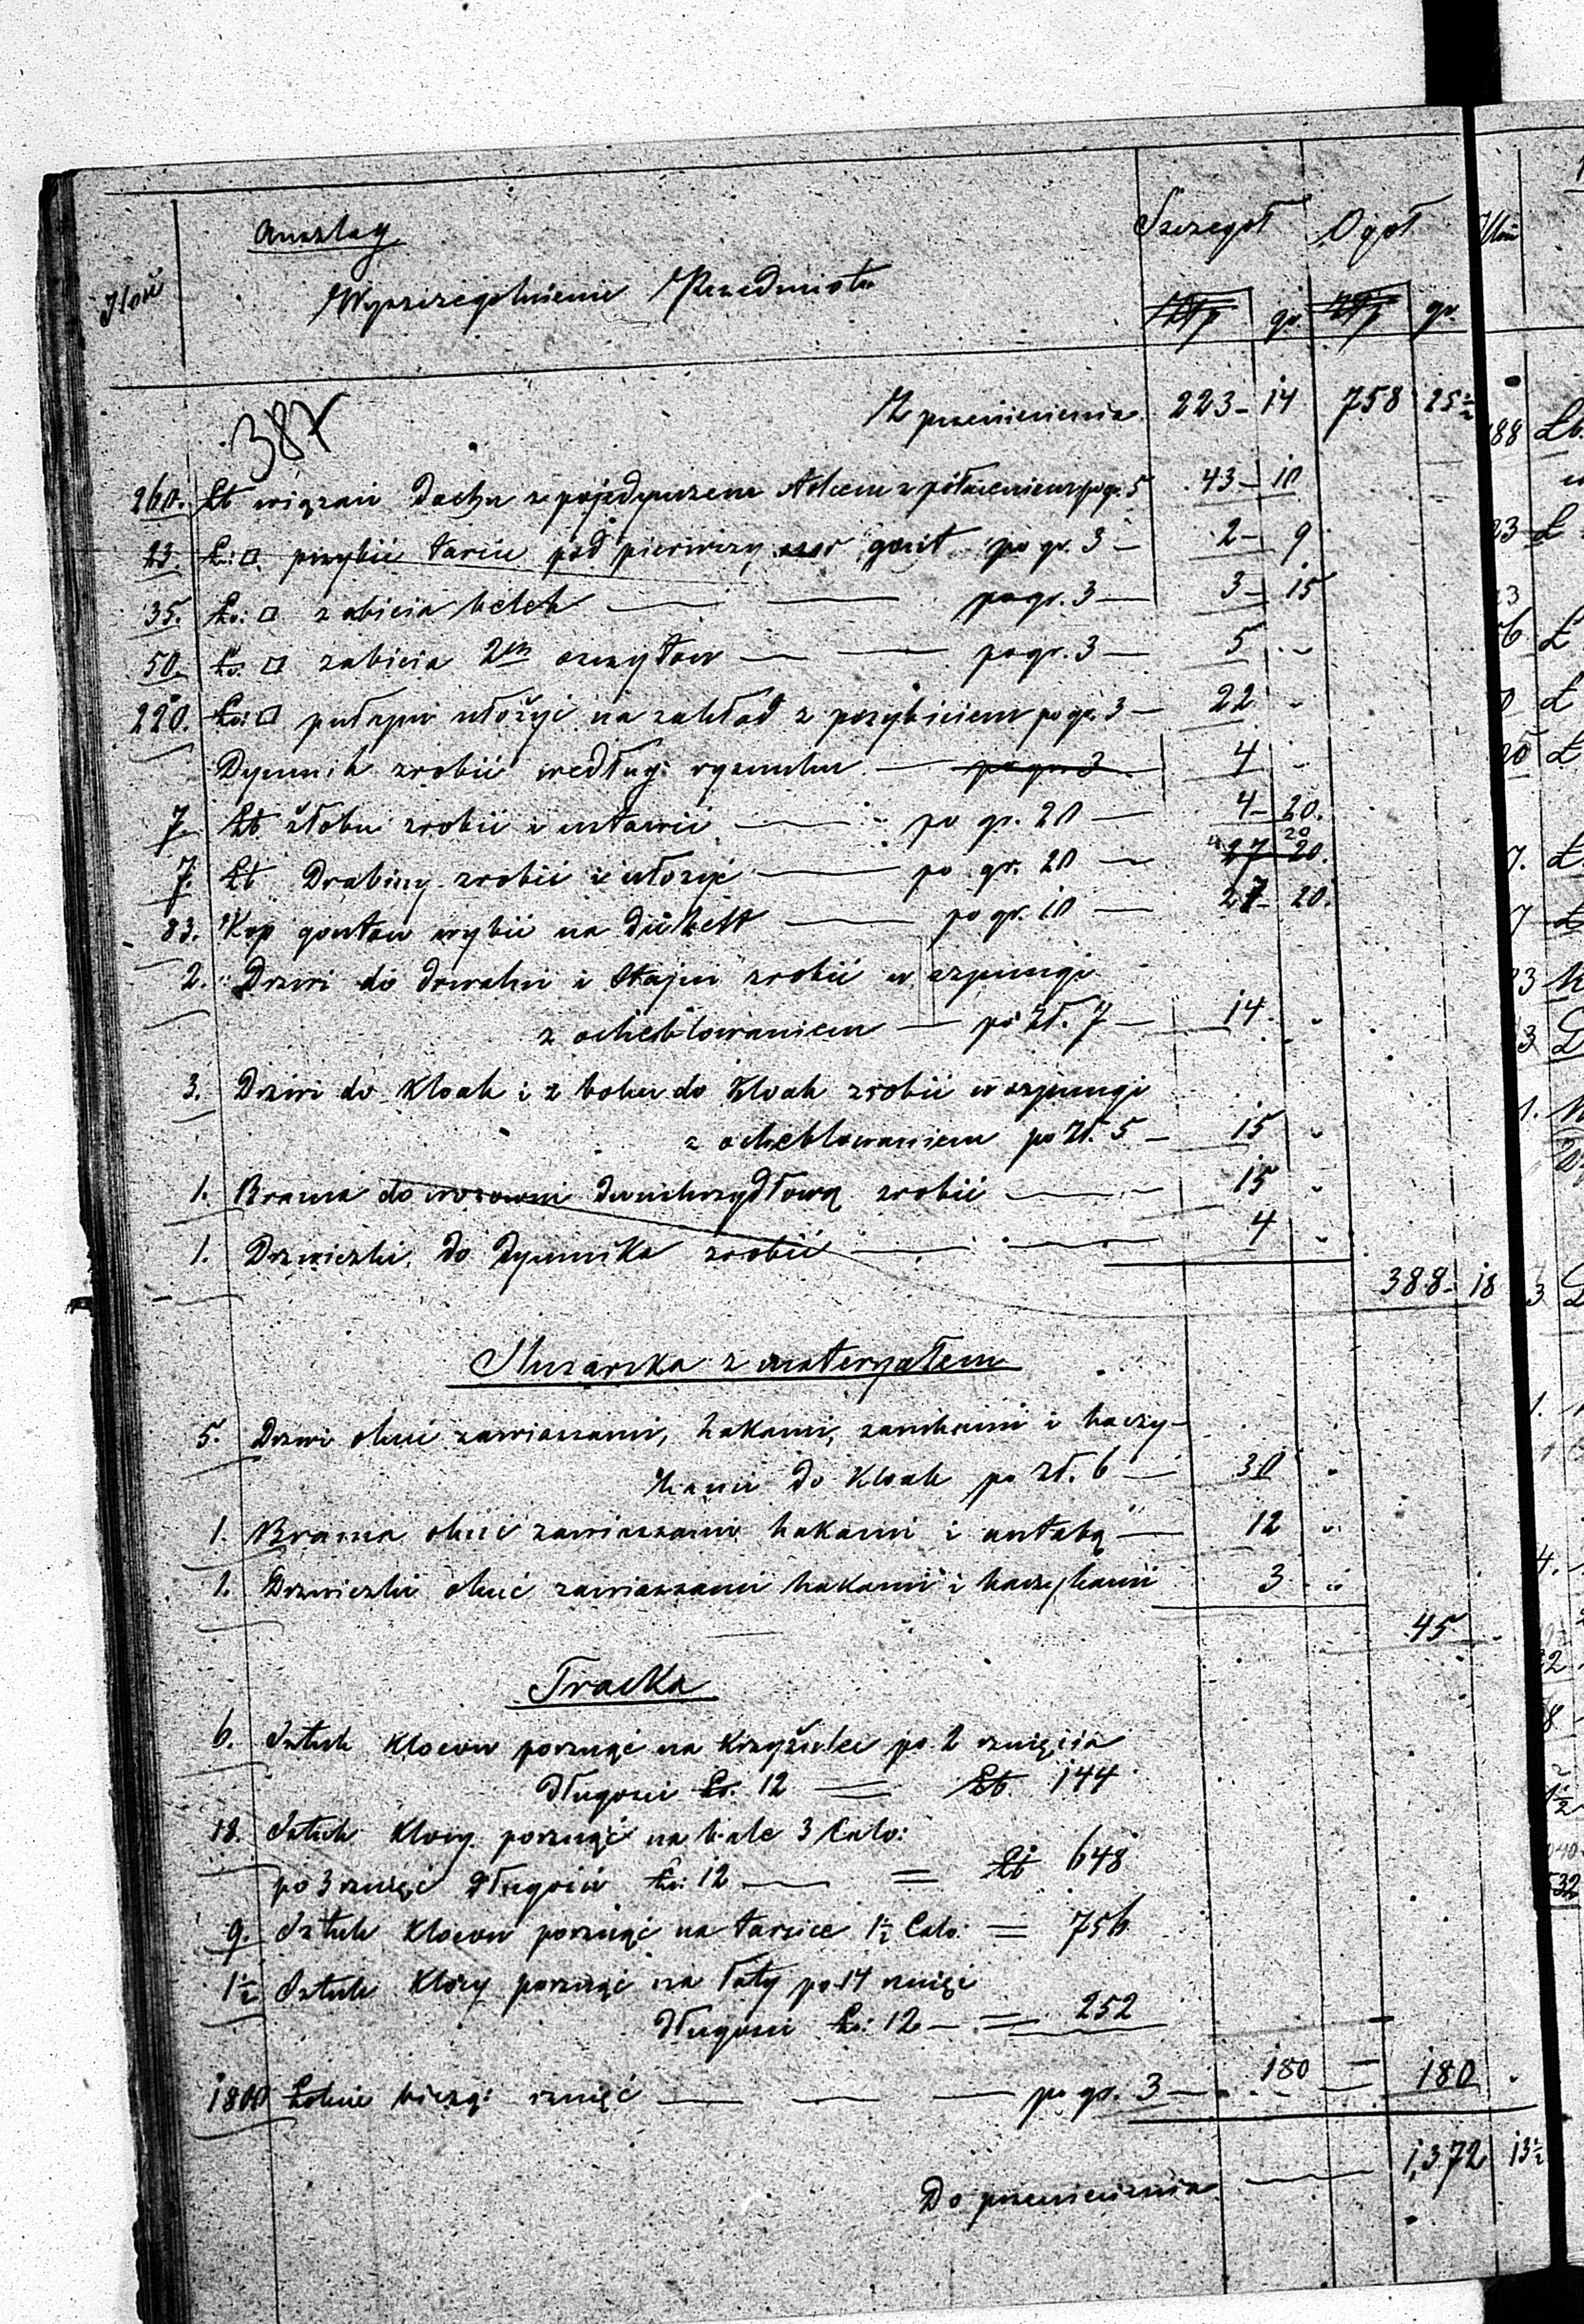 Anszlag
Szczegół Ogół
Ilość Wyszczegolnienie Przedmiotu
Złp gr Złp gr.
387
Z przeniesienia 223 - 14 758 25 1/2
260. Łb wiązań Dachu z pojedynczem z po gr. 5 43 - 10
23. Ło: □ przybić tarcic pod pierwszy szor gont po gr. 3 — 2 - 9
35. Ło: □ zabicia belek — — po gr. 3 — 3 - 15
50. Ło: □ zabicia 2ch szczytow — — po gr. 3 — 5 . -
220. Ło: □ pułapu ułożyć na zakład z przybiciem po gr. 3 — 22 -
Dymnik zrobić według: rysunku — po gr. 3 4 -
7. Łb żłobu zrobić i ustawić — po gr. 20 — 4 - 20.
7. Łb Drabiny zrobić i ułożyć — po gr. 20 — 4 20 27 20.
83. Kop gontow wybić na — po gr. 10 — 27 - 20.
2. Drzwi do drwalni i Stajni zrobić w szpungi
z ocheblowaniem — po Zł. 7 — 14 . -
3. Drzwi do Kloak i z boku do Kloak zrobić w szpungi
z ocheblowaniem po Zł. 5 — 15 -
1. Brama do wozowni dwuskrzydłową zrobić — 15 -
1. Drzwiczki do Dymnika zrobić — — 4 -
388 - 18
Slusarska z materyałem
5. Drzwi okuć zawiasami, hakami, zamkami i haczy-
kami do Kloak po zł. 6 — 30 -
1. Brama okuć zawiasami hakami i antabą — 12 -
1. Drzwiczki okuć zawiasami hakami i haczykami 3 -
45 -
Tracka
6. Sztuk Klocow porznąć na Krzyżulce po 2 rznięcia
długości Ło. 12 = Łb. 144
18. Sztuk Klocy porznąć na bale 3 Calo:
po 3 rznięć długości Ło: 12 — = Łb 648
9. Sztuk Klocow porznąć na tarcice 1 1/2 Calo: = 756
1 1/2 Sztuk Klocy porznąć na łaty po 14 rznięć
długości Ło: 12 — = 252
1800 Łokcie bieżą: rznięć — — — po gr. 3 — 180 = 180 -
Do przeniesienia — 1,372 13 1/2